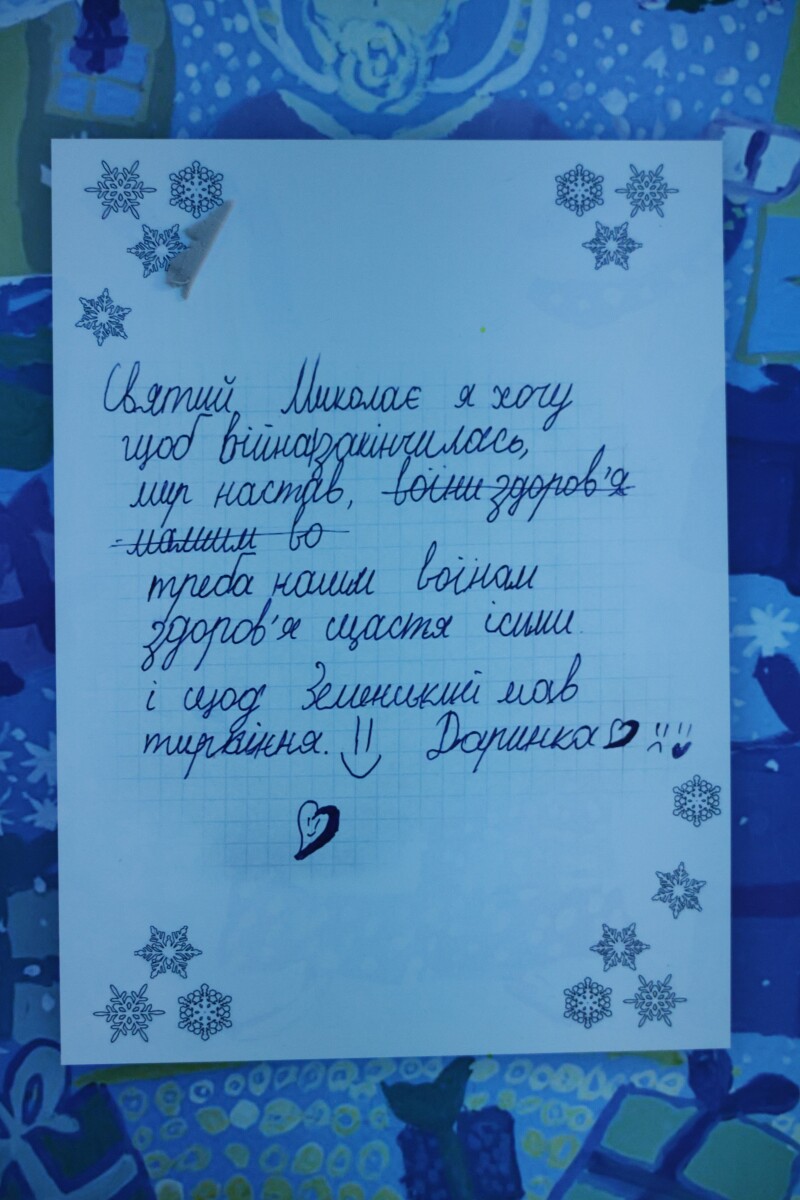 Святий Миколає я хочу
щоб війна закінчилась,
мир настав, воїни здоров'я
нашим во
треба нашим воїнам
здоров'я щастя і сили
і щоб Зеленький мав
тирпіння. Даринка